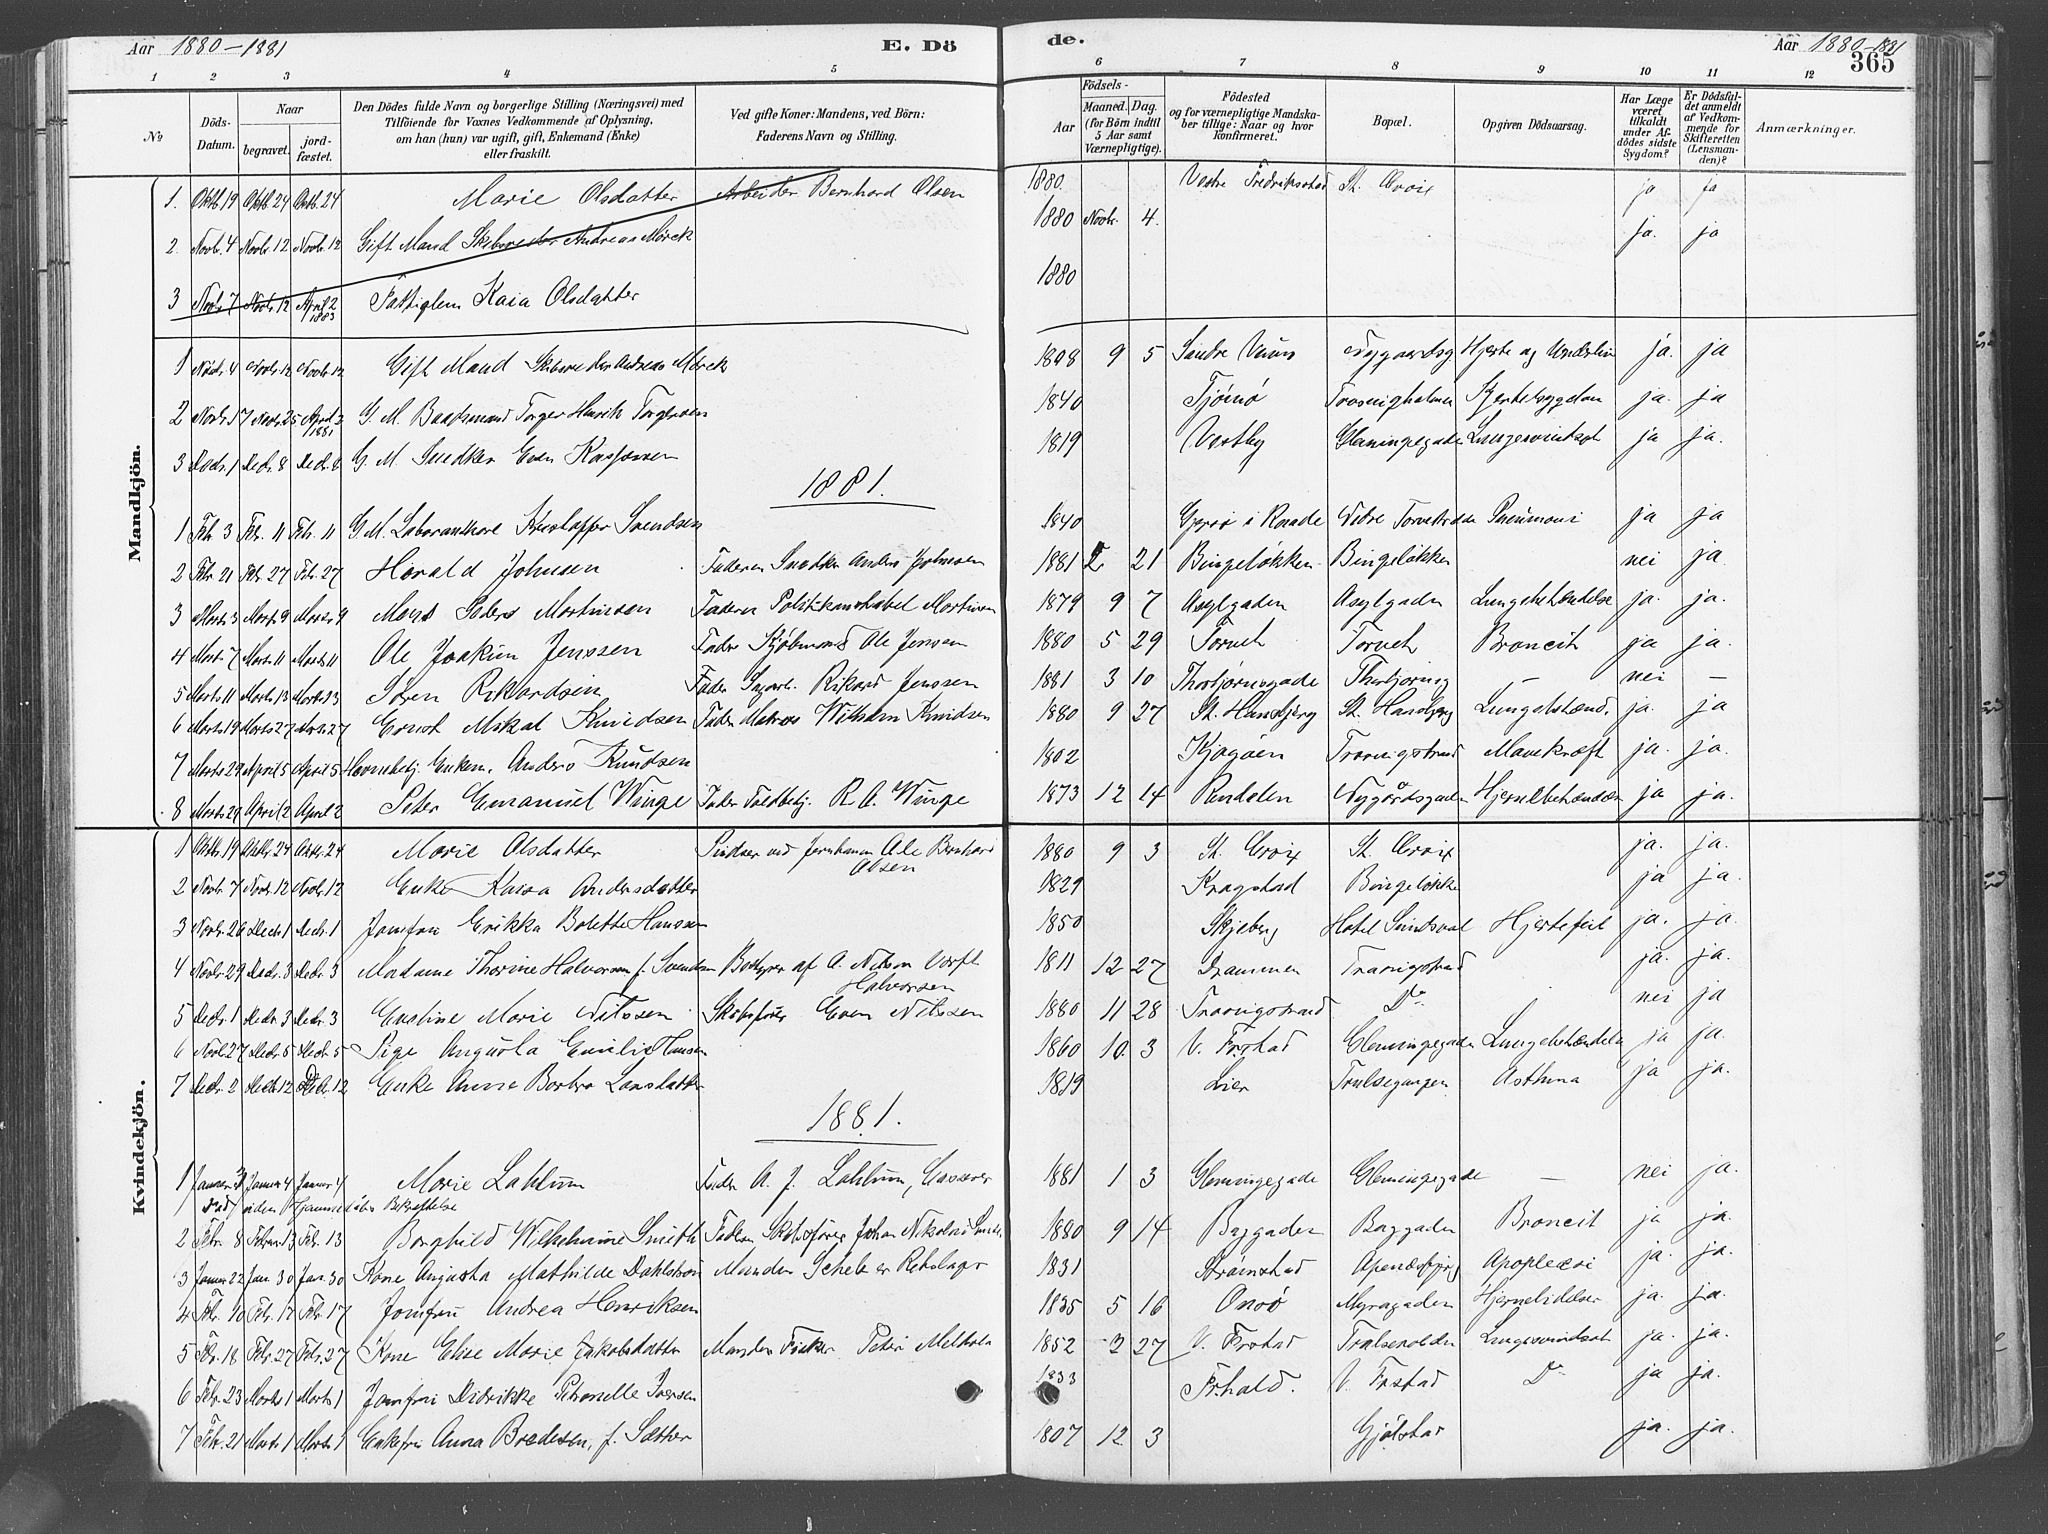 Aar 1880–1881 E. Dö
de. Aar 1880–1881
365
1 2 3 4 5 6 7 8 9 10 11 12
No Döds-Datum. Naar begravet. jord-fæstet. Den Dödes fulde Navn og borgerlige Stilling (Næringsvei) med Tilföiende för Voxnes Vedkommende af Oplysning, om han (hun) var ugift, gift, Enkemand (Enke) eller fraskilt. Ved gifte Koner: Mandens, ved Börn: Faderens Navn og Stilling. Födsels- Aar Maaned. Dag. (for Börn indtil 5 Aar samt Værnepligtige). Födested og for værnepligtige Mandskaber tillige: Naar og hvor konfirmeret. Bopæl. Opgiven Dödsaarsag. Har Læge været tilkaldt under Afdödes sidste Sygdom? Er Dödsfaldet anmeldt af Vedkommende for Skifteretten (Lensmanden)? Anmærkninger.
Mandkjön.
1. Oktb. 19 Oktb. 24 Octb. 24 Marie Olsdatter Arbeider Bernhard Olsen 1880 Vestre Fredriksstad St. Croix ja ja
2 Novbr. 4 Novbr. 12 Novbr. 12 Gift Mand Skibsreder Andreas Mørck 1880 Novbr. 4. ja. ja
3 Novbr. 7 Novbr. 12 April 2 1883 Fattiglem Kaia Olsdatter 1880
1 Novbr. 4 Novbr. 12 Novbr. 12 Gift Mand Skibsreder Andreas Mørck 1808 9 5 Nygaardsg Hjerte og ja. ja
2 Novbr. 17 Novbr. 25 April 3 1881 G. M. Baadsmand Torger Henrik Torgersen 1840 Tjömö ja. ja
3 Decbr. 1 Decbr. 8 Decbr. 8 G. M. Snedker Even 1819 Vestby Glemingegaden Lungesvindsot ja ja.
1881.
1 Feb. 3 Feb. 11 Feb. 11 G. M. Kristoffer Svendsen 1840 i Raade Nedre Pneumoni ja ja
2 Febr. 21 Febr. 27 Febr. 27 Harald Johnsen Faderen Snedker Anders Johnsen 1881 2 21 Bingeløkken Bingeløkken nei ja
3 Marts 3 Marts 9 Marts 9 Mortinsen Faderen Politikonstabel Mortinsen 1879 9 7 Asylgaden Asylgaden Lungebetændelse ja. ja.
4 Mart. 7 Marts 11 Marts 11 Ole Joakim Jenssen Fader Kjöbmand Ole Jenssen 1880 5 29 Torvet Torvet Broncit ja ja.
5 Marts 11 Marts 13 Marts 13 Sören Rikardsen Fader Rikard Jenssen 1881 3 10 Thorbjörnsgade Thorbjörnsg – nei –
6 Marts 19 Marts 27 Marts 27 Ernst Mikal Knudsen Fader Matros Wilhelm Knudsen 1880 9 27 St. Hansbjerg St. Hansbjerg Lungebetænd. ja. ja
7 Marts 29 April 5 April 5 Havnebetj. Enkem. Anders Knudsen 1802 Kjøgøen Mavekræft ja. ja.
8 Marts 29 April 2 April 2 Peter Emanuel Winge Fader Toldbetj. R. A. Winge 1873 12 14 Rendalen Nygårdsgaden Hjernebetændelse ja ja.
Kvindekjön.
1 Oktb. 19 Oktbr. 24 Oktbr. 24 Marie Olsdatter Pudser ved Jernbanen Ole Bernhard Olsen 1880 9 3 St. Croix St. Croix ja. ja.
2 Novbr. 7 Novbr. 12 Novbr. 12 Enke Andersdatter 1829 Kragstad Bingeløkke ja ja.
3 Novbr. 26 Decb. 1 Decbr. 1 Jomfru Erikka Bolette Hanssen 1850 Skjeberg Hotel Sundsval Hjertefeil ja. ja.
4 Novbr. 29 Decbr. 3 Decbr. 3 Madame Thorine Halvorsen f. Svendsen Bestyrer af A. Nilsen Værft Halvorsen 1811 12 27 Drammen ja. ja.
5 Decbr. 1 Decbr. 3 Decbr. 3 Eveline Marie Nilssen Skibsfører Even Nilssen 1880 11 28 Do nei ja
6 Novbr. 27 Decbr. 5 Decbr. 5 Pige Augusta Emilie Hansen 1860 10. 3 V. Frstad Glemingegaden Lungebetændelse ja ja.
7 Decbr. 2 Decb. 12 Decb. 12 Enke Anne Barbro Larsdatter 1819 Lier Trulsegangen Asthma ja ja.
1881.
1 Januar 3 Januar 4 Januar 4 Marie Lahlum Fader A. J. Lahlum, Casserer 1881 1 3 Glemingegade Glemingegade – nei ja.
1 död uden Hjemmedåbs Bekræftelse
2 Febr. 8 Februar 13 Febr. 13 Borghild Wilhelmine Smith Faderen Skibsfører Johan Nikolai Smith 1880 9 14 Baggaden Baggaden Broncit ja ja.
3 Januar 22 Jan. 30 Jan. 30 Kone Augusta Mathilde Dahlström Manden 1831 Strömstad Apenæsfjerg Apoplexi ja. ja.
4 Febr. 10 Febr. 17 Febr. 17 Jomfru Andrea Henriksen 1835 5 16 Onsö Myragaden Hjernelidelser ja. ja.
5 Febr. 18 Febr. 27 Febr. 27 Kone Elise Marie Jakobsdatter Manden Fisker Peter 1852 3 27 V. Frstad Lungesvindsot ja. ja.
6 Febr. 23 Marts 1 Marts 1 Jomfru Didrikke Petronelle Iversen 1833 Frhald. V. Frstad Do ja ja.
7 Febr. 21 Marts 1 Marts 1 Enkefru Anna Bredesen, f. Sætter 1807 12 3 Gjölstad ja. ja.